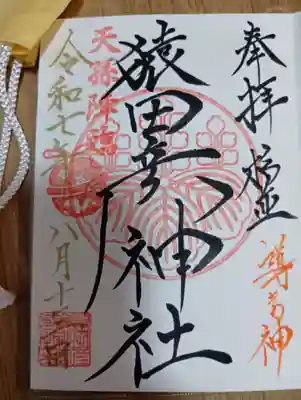 奉拝
導き神
猿田彦神社
天孫降臨
令和七年八月十二日